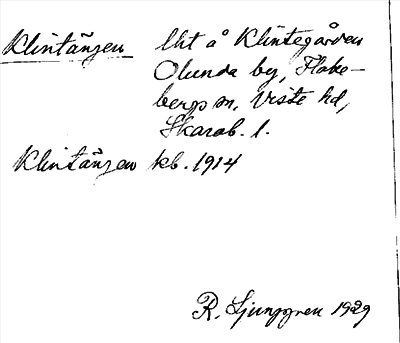 Klintängen lht å Klintegården
Olunda by, Flake-
bergs sn, Viste hd,
Skarab. l.
Klintängen kb. 1914
R. Ljunggren 1929